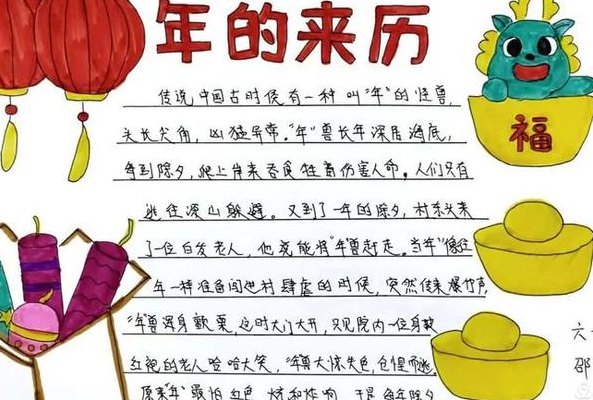 年的来历
福
传说中国古时候有一种叫"年"的怪兽,
头长尖角,凶猛异常。"年"兽长年深居海底,
每到除夕,爬上岸来吞食牲畜伤害人命。人们只有
逃往深山躲避。又到了一年的除夕,村东头来
了一位白发老人,他竟能将"年"兽赶走。当年"像往
年一样准备闯进村肆虐的时候,突然传来爆竹声,
"年"兽浑身颤栗,这时大门大开,只见院内一位身
红袍的老人哈哈大笑,"年"兽大惊失色,仓惶而逃。
原来"年"最怕红色
六
邵